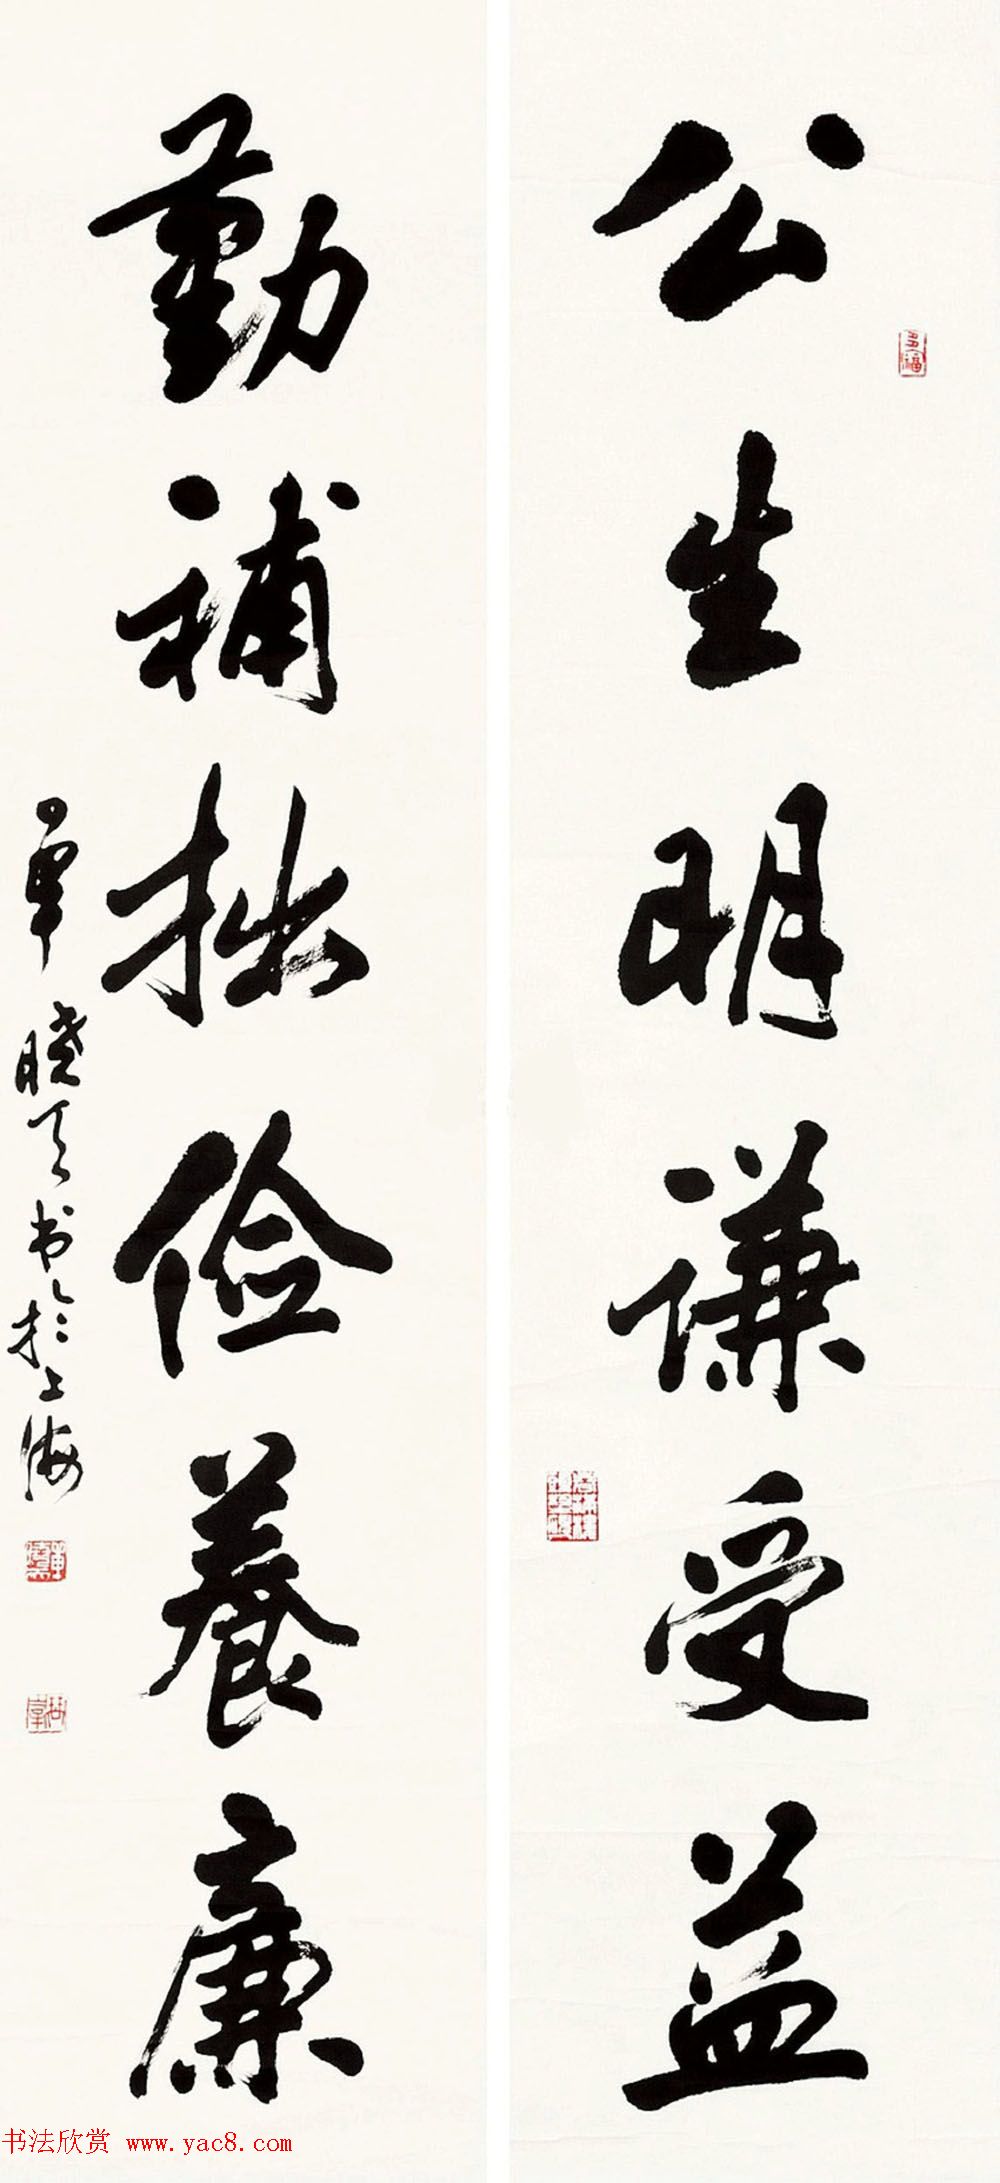 公生明谦受益
勤補拙俭養廉
覃晓天书於上海
多福
书法欣赏 www.yac8.com